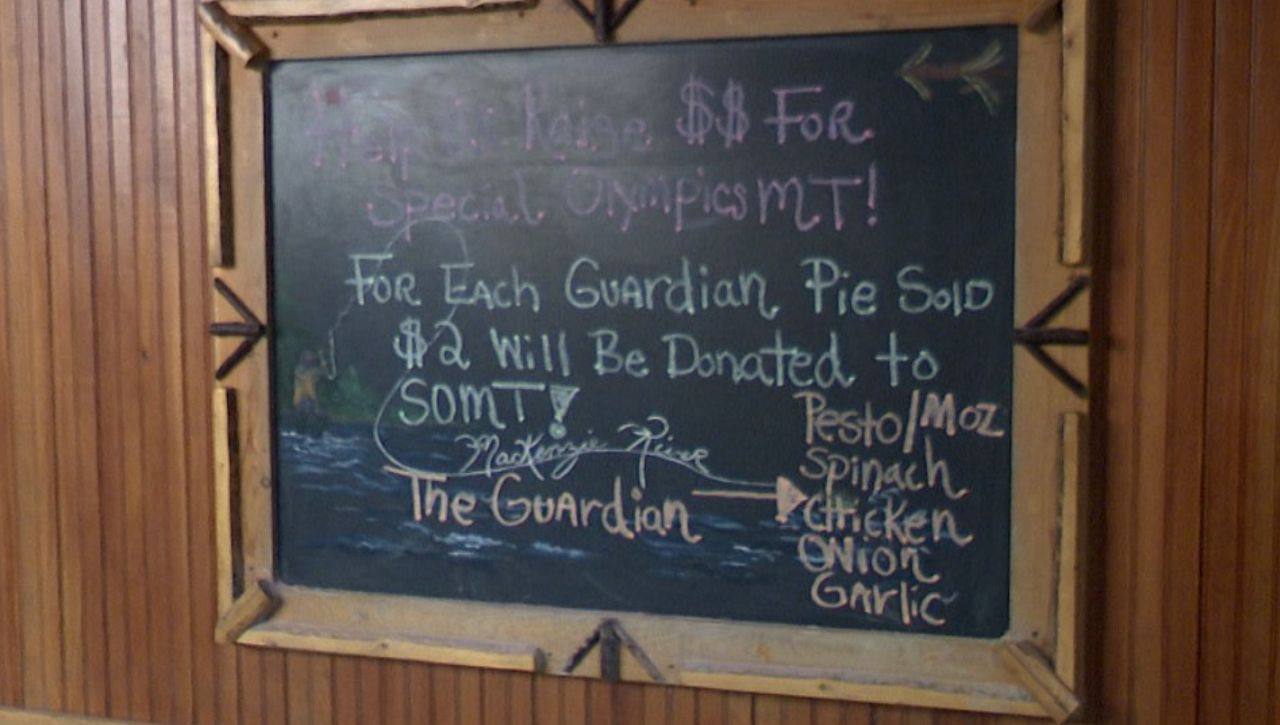 Help Us Raise $$ FOR
Special Olympics MT!
FOR EAch GUARdian Pie SOlD
$2 Will Be Donated to
SOMT!
MacKenzie River
The GUARdian
Pesto/Moz
Spinach
Chicken
ONion
GARlic